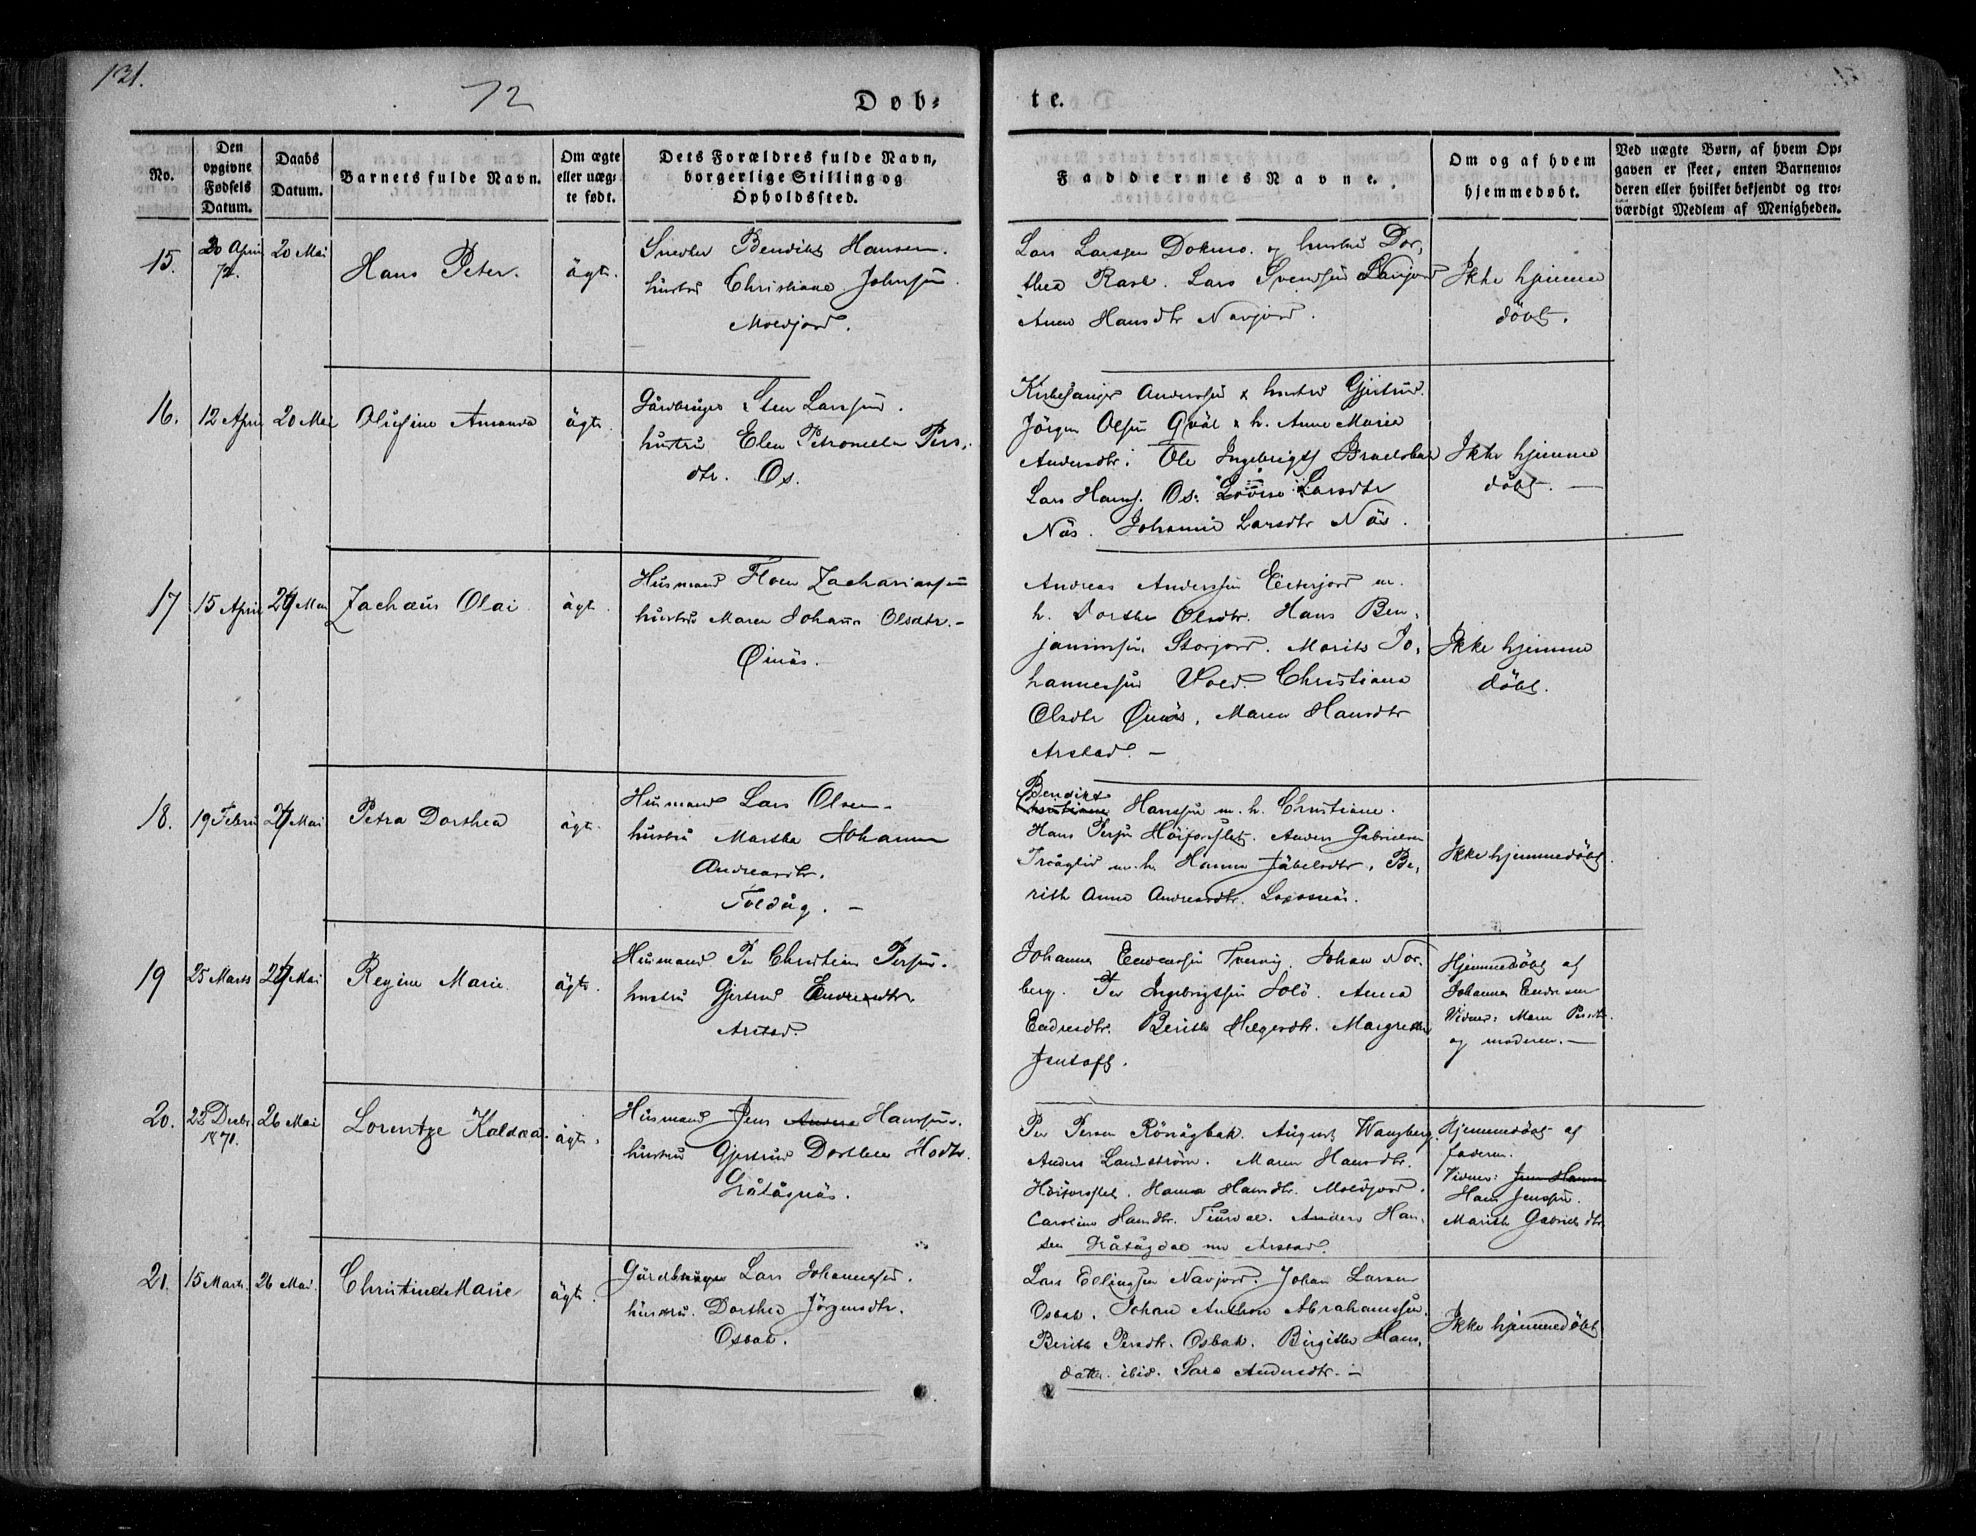 131.
72
Døb-
te.
No.
Den opgivne Fødsels Datum.
Daabs Datum.
Barnets fulde Navn.
Om ægte eller uægte født.
Dets Forældres fulde Navn, borgerlige Stilling og Opholdssted.
Faddernes Navne.
Om og af hvem hjemmedøbt.
Ved uægte Børn, af hvem Opgaven er skeet, enten Barnemoderen eller hvilket bekjendt og troværdigt Medlem af Menigheden.
15.
April 72.
20 Mai
Hans Peter.
ägt.
Bendikt Hansen
hustru Christiane Johnsen
Moldjord.
Lars Larsen Dokmo. og hustru Dor-
thea Lars Svendsen Navjord
Anne Hansdtr Navjord.
Ikke hjemme
döbt.
16.
12 April
20 Mai
Olufine Amanda
ägt.
Gårdbruger Sten Larssen.
hustru Elen Petronella Pers-
dtr. Os.
Kirkesanger Anderssen & hustru Gjertrud.
Jörgen Olsen Qväl & h. Anne Maria
Andersdtr. Ole Ingebrigts
Lars Hans. Os. Larsdtr
Näs. Johanna Larsdtr Näs.
Ikke hjemme
döbt. —
17
15 April
Mai
Zachæus Olai
ägt.
Husmand Zachariassen
hustru Maren Johanna Olsdtr. -
Öinäs.
Andreas Anderssen Eiterjord m.
h. Dorthe Olsdtr. Hans Ben-
jaminsen Storjord. Morits Jo-
hannessen Vold. Christiana
Olsdtr Öinäs, Maren Hansdtr
Arstad. —
Ikke hjemme
döbt.
18.
19 Febru
Mai
Petra Dorthea
ägt.
Husmand Lars Olsen.
hustru Martha Johanna
Andreasdtr.
Toldåg. —
Bendikt
Christiane Hanssen m. h. Christiane.
Hans Persen Höiforslet. Anders Gabrielsen
Tröåglid m. h. Hanna Jäbelsdtr. Be-
rith Anna Andreasdtr.
Ikke hjemmedöbt.
19
25 Marts
Mai
Regine Marie
ägt.
Husmand Per Christian Persen.
hustru Gjertrud Endresdtr.
Arstad.
Johannes Tvervig. Johan Nor-
berg. Per Ingebrigtsen Solö. Anna
Endresdtr. Berith Helgesdtr. Margrethe
Jentoft.
Hjemmedöbt af
Johannes Endresen
Vidner: Maren Persdtr.
og moderen. —
20.
22 Decbr. 1871.
26 Mai
Lorentze Kaldea
ägt.
Husmand Jens Anders Hanssen.
hustru Gjertrud Dorthea
Gråtågnäs.
Per Persen Rönågbak. August Wangberg.
Anders Landström. Maren Hansdtr.
Höiforslet. Hanna Hansdtr. Moldjord.
Caroline Hansdtr. Anders Han-
sen Gråtågdal nu Arstad.
Hjemmedöbt af
faderen.
Vidner: Jens Hansen
Hans Jenssen.
Marith Gabrielsdtr
21.
15 Marts.
26 Mai.
Christine Marie
ägt.
Gårdbruger Lars Johannessen.
hustru. Dorthea Jörgensdtr.
Osbak.
Lars Ellingsen Navjord. Johan Larsen
Osbak. Johan Anthon Abrahamssen.
Berith Persdtr. Osbak. Birgitte Hans-
datter ibid. Sara Andersdtr. —
Ikke hjemmedöbt